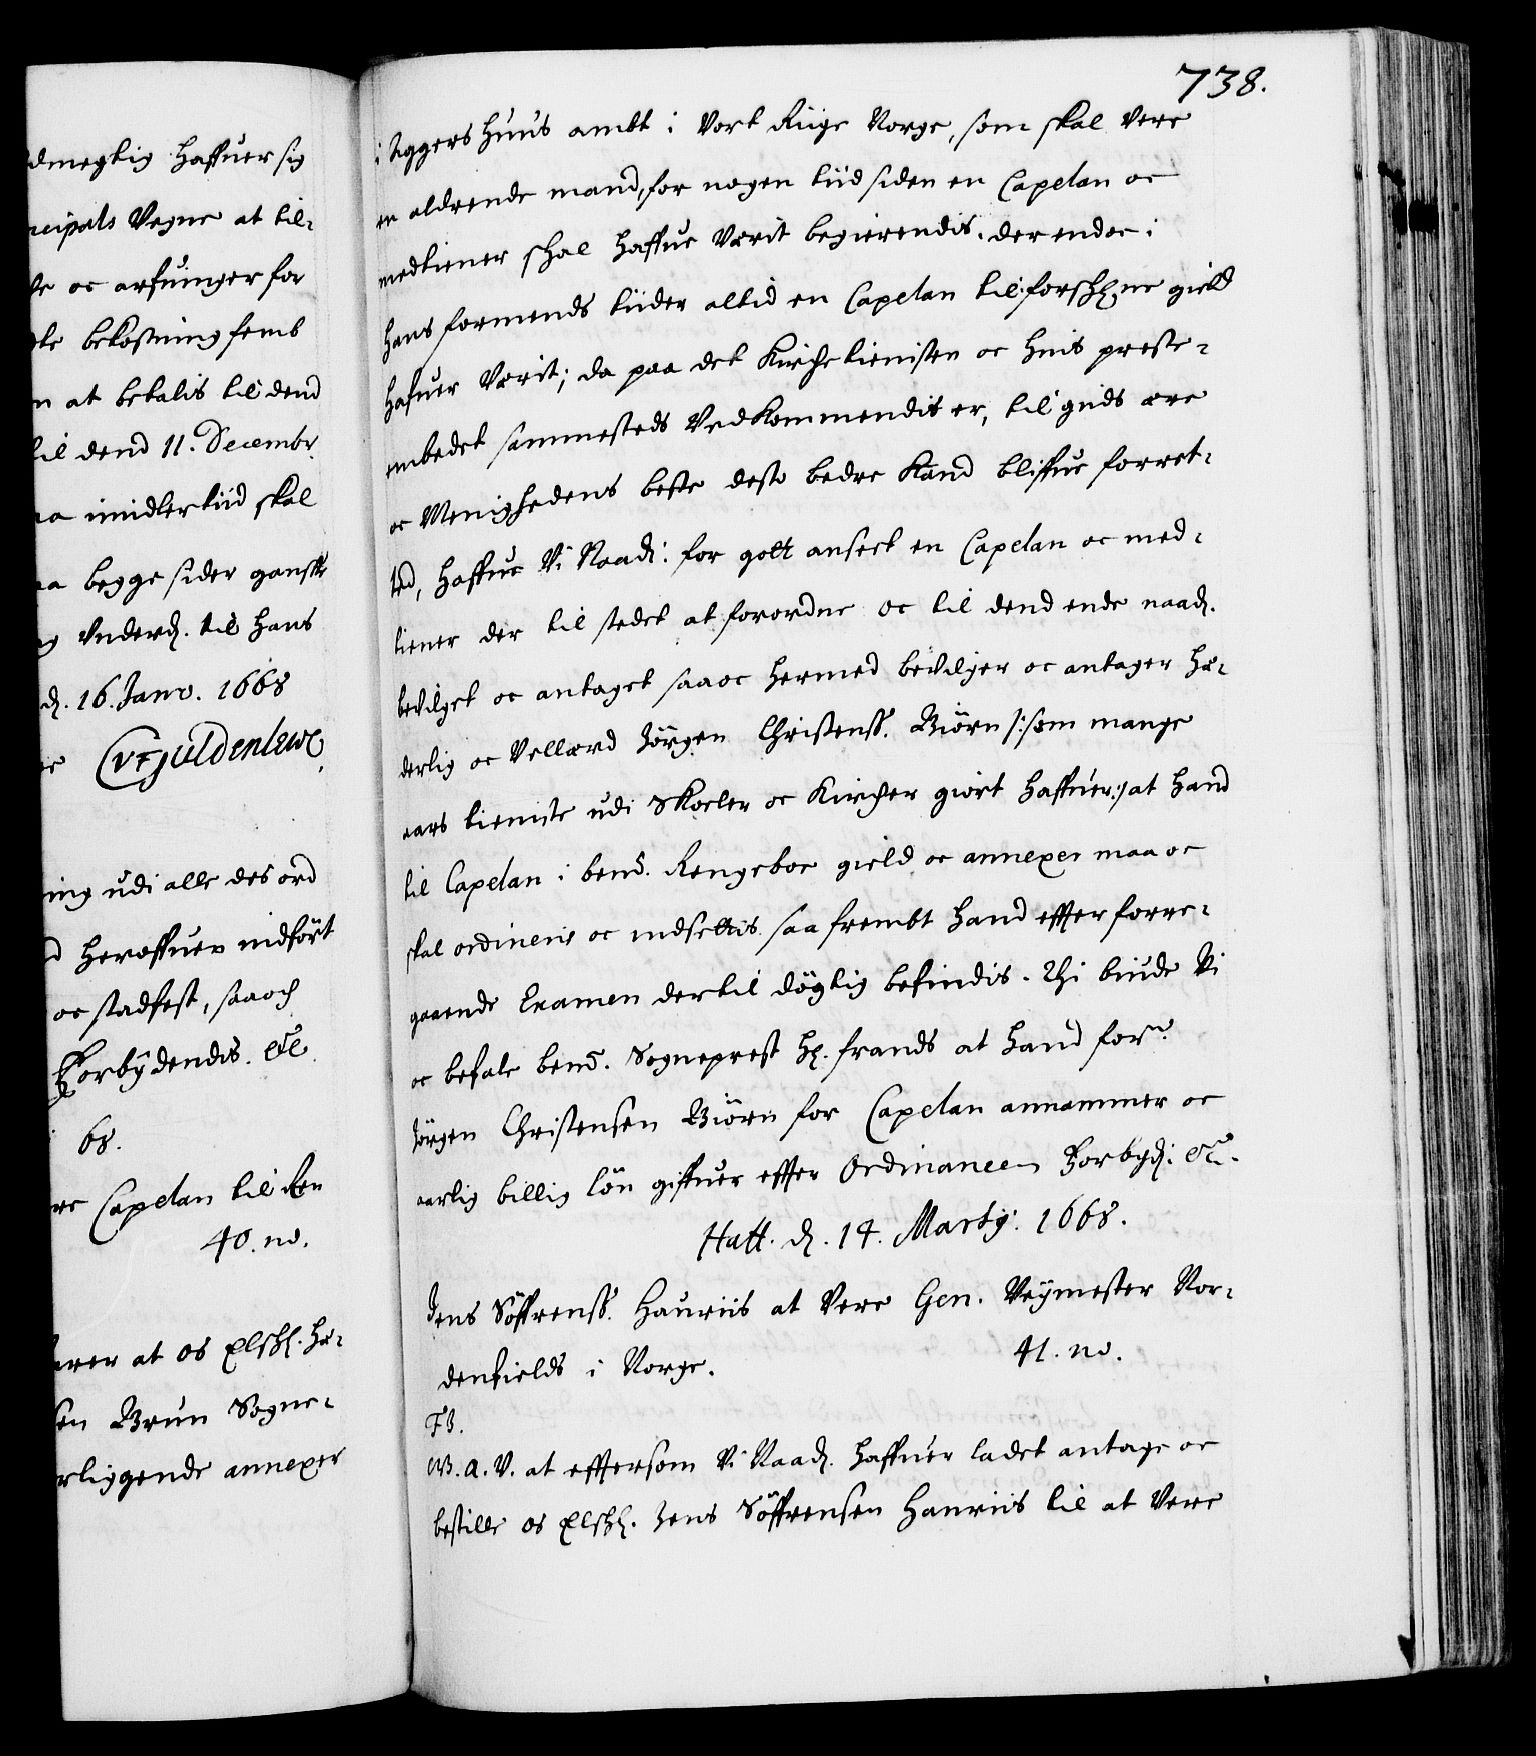 738.
dmegtig haffuer sig
ncipals Vegne at til-
de oc arfuinger for
bekostning femb
n at betalis til dend
til dend 11. Decembr.
imidlertiid skal
a begge sider ganske
Underd. til hans
d. 16. Janv. 1668
CVFGüldenlewe
ning udi alle des ord
d heroffuen indfört
oc stadfest, saaoch
Forbÿdendis. etc.
68.
re Capelan til Ren
40. no.
at os Elschel. hæ-
sen Brun Sogne-
rliggende annexer
i Aggershuus ambt i Vort Riige Norge, som skal Vere
en aldrende mand, for nogen tiid siden en Capelan oc
medtiener skal haffue Værit begierendis. der endoc i
hans formends tiider altid en Capelan til forschrefne gield
hafuer Værit; da paa det Kirchetienisten oc huis preste-
embedet sammesteds VedKommendis er, til guds ære
oc Menighedens beste desto bedre Kand bliffue forret-
ted, haffue Vi Naad: for gott anseet en Capelan oc med-
tiener der til stedet at forordne oc til dend ende naad.
bevilget oc antaget saaoc hermed bevilger oc antager hæ-
derlig oc Vellærd Jörgen Christenss. Biörn /: som mange
aars tieniste udi Skoeler oc Kircher giört haffuer :/ at hand
til Capelan i bemt. Rengeboe gield oc annexer maa oc
skal ordineris oc indsettis. saa frembt hand effter forre-
gaaende Examen dertil dögtig befindis. Thi biude Vi
oc befale bemt. Sogneprest Hr. frands at hand forn.
Jörgen Christensen Biörn for Capelan annammer oc
aarlig billig lön giffuer effter Ordinancen Forbyd: etc.
Haff. d. 14. Martij. 1668.
Jens Söffrenss. Hauriis at Vere Gen. Veÿmester Nor-
denfields i Norge.
41. no.
F3.
WB. A. V. at efftersom Vi Naad. haffuer ladet antage oc
bestille os Elschel. Jens Söffrensen Hauriis til at Vere